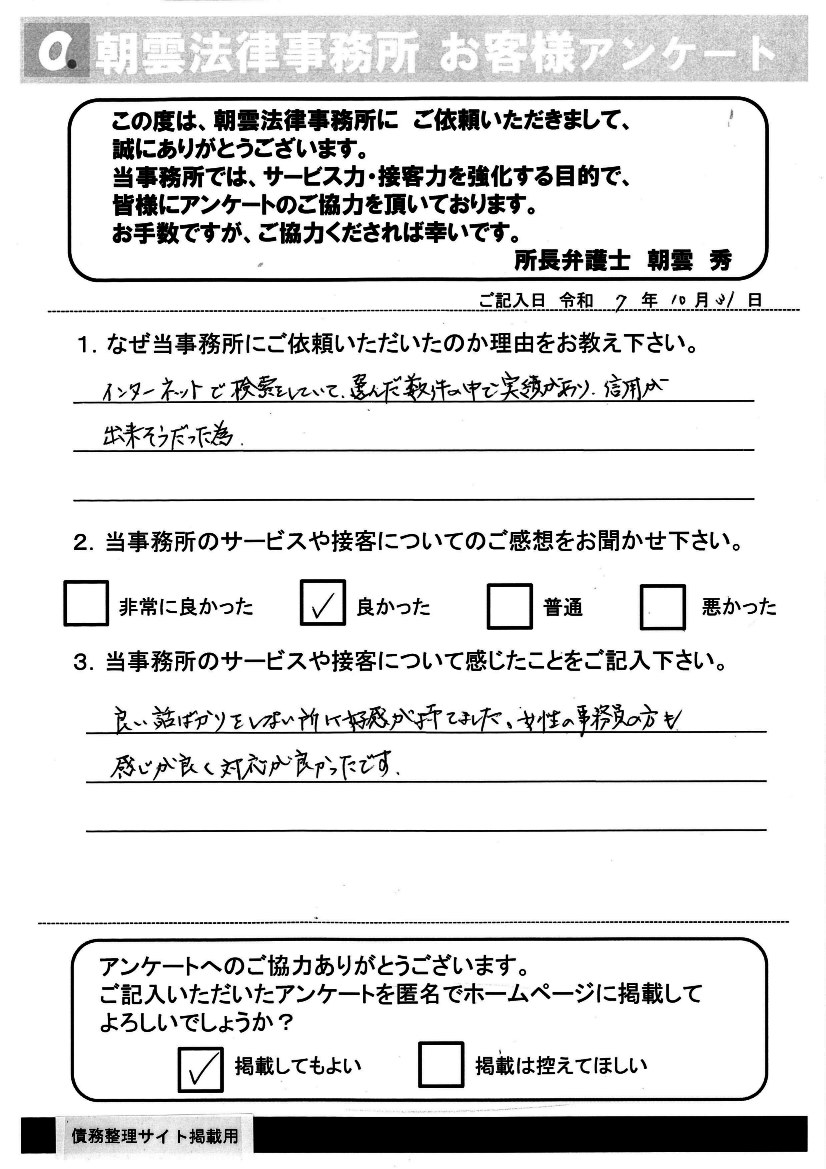 a. 朝雲法律事務所 お客様アンケート
この度は、朝雲法律事務所に ご依頼いただきまして、
誠にありがとうございます。
当事務所では、サービス力・接客力を強化する目的で、
皆様にアンケートのご協力を頂いております。
お手数ですが、ご協力くだされば幸いです。
所長弁護士 朝雲 秀
ご記入日 令和 7 年 10 月 31 日
1. なぜ当事務所にご依頼いただいたのか理由をお教え下さい。
インターネットで検索をしていて、選んだ数件の中で実績があり、信用が
出来そうだった為.
2. 当事務所のサービスや接客についてのご感想をお聞かせ下さい。
非常に良かった ✓ 良かった 普通 悪かった
3. 当事務所のサービスや接客について感じたことをご記入下さい。
良い話ばかりをしない所に好感が持てました。女性の事務員の方も
感じが良く対応が良かったです.
アンケートへのご協力ありがとうございます。
ご記入いただいたアンケートを匿名でホームページに掲載して
よろしいでしょうか？
✓ 掲載してもよい 掲載は控えてほしい
債務整理サイト掲載用